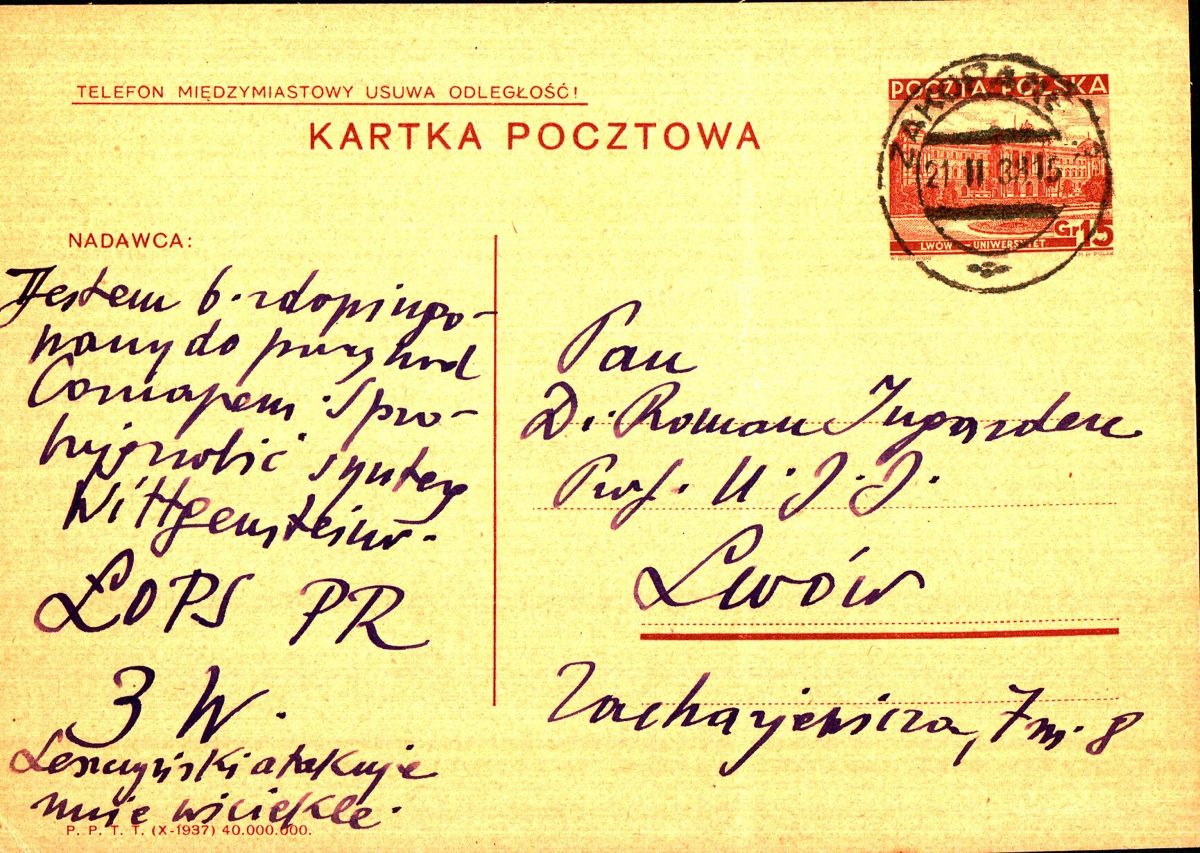 TELEFON MIĘDZYMIASTOWY USUWA ODLEGŁOŚĆ!
KARTKA POCZTOWA
POCZTA POLSKA
ZAKOPANE
21 II 38 15
Gr 15
LWÓW – UNIWERSYTET
NADAWCA:
Jestem b. zdopingo-
wany do
Spró-
Wittgenstein
ŁOPS PR
3 W.
Leszczyński atakuje
mnie wściekle.
Pan
Dr Roman Ingarden
Prof. U. J. J.
Lwów
Zacharjewicza, 7 m. 8
P. P. T. T. (X-1937) 40.000.000.